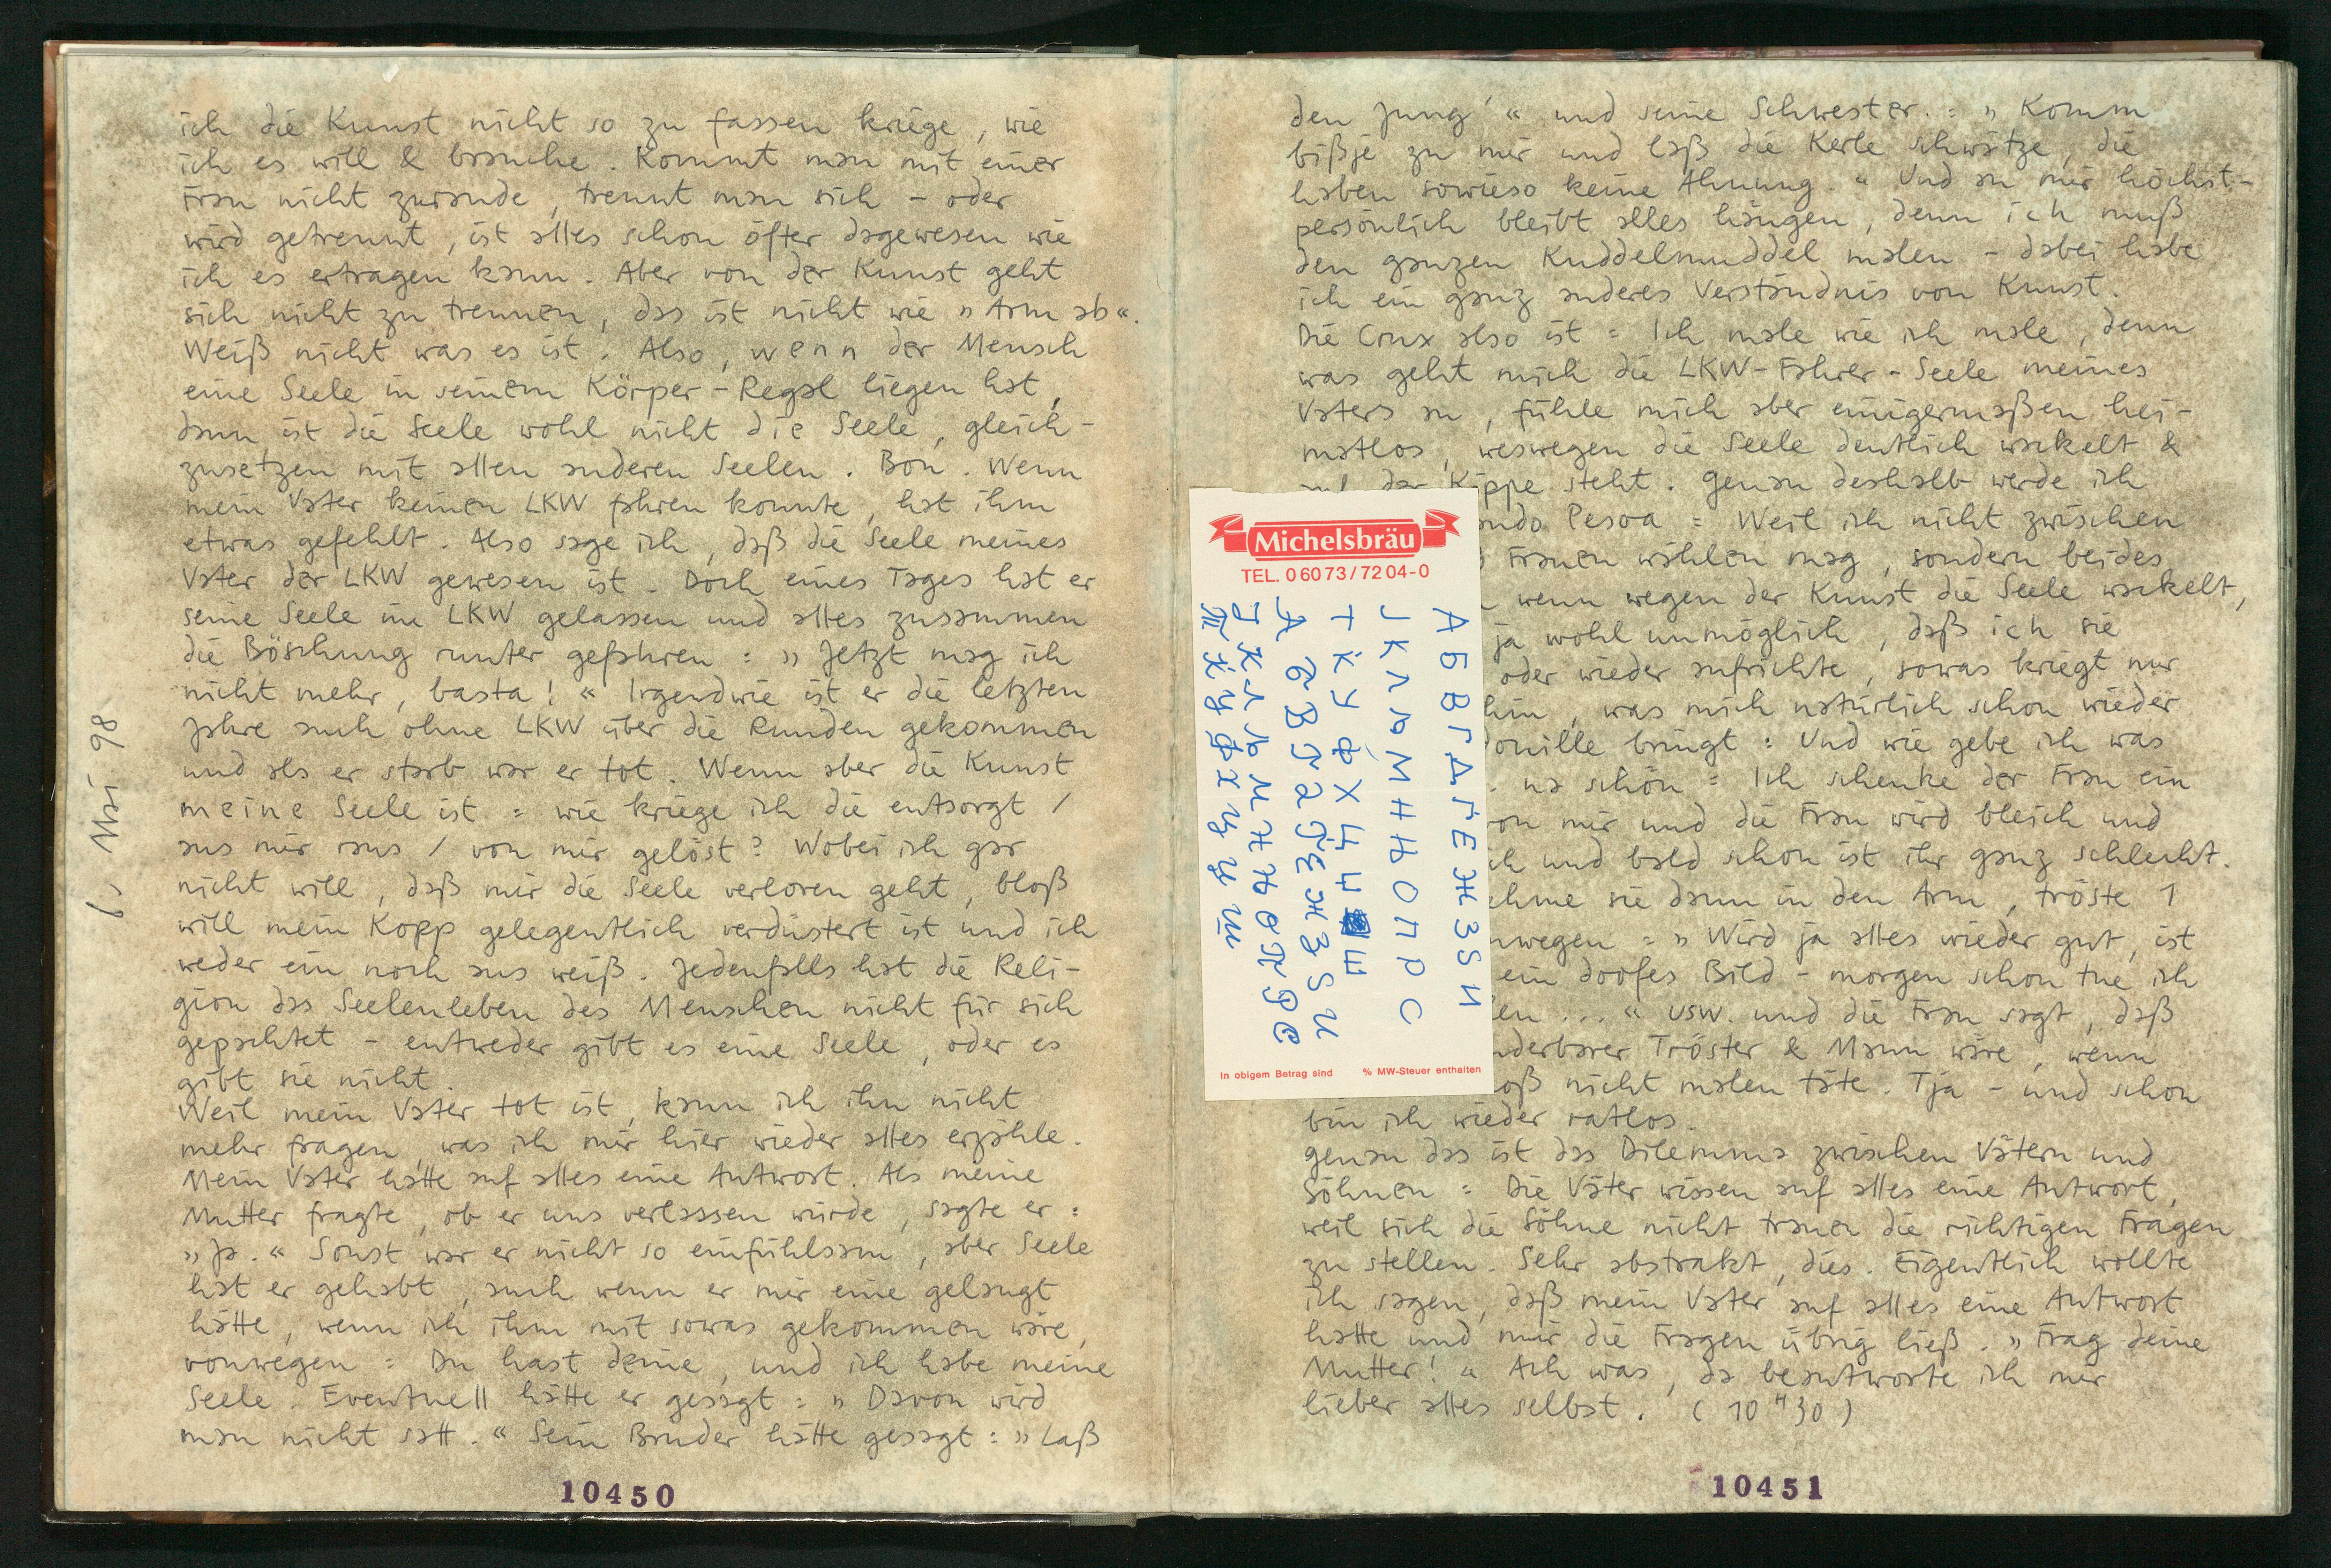 ich die Kunst nicht so zu fassen kriege, wie
ich es will & brauche. Kommt man mit einer
Frau nicht zurande, trennt man sich – oder
wird getrennt, ist alles schon öfter dagewesen wie
ich es ertragen kann. Aber von der Kunst geht
sich nicht zu trennen, das ist nicht wie » Arm ab «.
Weiß nicht was es ist. Also, wenn der Mensch
eine Seele in seinem Körper-Regal liegen hat,
dann ist die Seele wohl nicht die Seele, gleich-
zusetzen mit allen anderen Seelen. Bon. Wenn
mein Vater keinen LKW fahren konnte, hat ihm
etwas gefehlt. Also sage ich, daß die Seele meines
Vater der LKW gewesen ist. Doch eines Tages hat er
seine Seele im LKW gelassen und alles zusammen
die Böschung runter gefahren : » Jetzt mag ich
nicht mehr, basta! « Irgendwie ist er die letzten
Jahre auch ohne LKW über die Runden gekommen
und als er starb war er tot. Wenn aber die Kunst
meine Seele ist : wie kriege ich die entsorgt /
aus mir raus / von mir gelöst? Wobei ich gar
nicht will, daß mir die Seele verloren geht, bloß
will mein Kopp gelegentlich verdüstert ist und ich
weder ein noch aus weiß. Jedenfalls hat die Reli-
gion das Seelenleben des Menschen nicht für sich
gepachtet – entweder gibt es eine Seele, oder es
gibt sie nicht.
Weil mein Vater tot ist, kann ich ihn nicht
mehr fragen, was ich mir hier wieder alles erzähle.
Mein Vater hatte auf alles eine Antwort. Als meine
Mutter fragte, ob er uns verlassen würde, sagte er :
» Ja. « Sonst war er nicht so einfühlsam, aber Seele
hat er gehabt, auch wenn er mir eine gelangt
hätte, wenn ich ihm mit sowas gekommen wäre,
vonwegen : Du hast deine, und ich habe meine
Seele. Eventuell hätte er gesagt : » Davon wird
man nicht satt. « Sein Bruder hätte gesagt : » Laß
6. Mai 98
10450
den Jung' « und seine Schwester. : » Komm
bißje zu mir und laß die Kerle schwätze, die
haben sowieso keine Ahnung. « Und an mir höchst-
persönlich bleibt alles hängen, denn ich muß
den ganzen Kuddelmuddel malen – dabei habe
ich ein ganz anderes Verständnis von Kunst.
Die Crux also ist : Ich male wie ich male, denn
was geht mich die LKW-Fahrer-Seele meines
Vaters an, fühle mich aber einigermaßen hei-
matlos, weswegen die Seele deutlich wackelt &
auf der Kippe steht. Genau deshalb werde ich
Pesoa : Weil ich nicht zwischen
Frauen wählen mag, sondern beides
wenn wegen der Kunst die Seele wackelt,
ja wohl unmöglich, daß ich sie
oder wieder aufrichte, sowas kriegt nur
hin, was mich natürlich schon wieder
bringt : Und wie gebe ich was
na schön : Ich schenke der Frau ein
von mir und die Frau wird bleich und
und bald schon ist ihr ganz schlecht.
sie dann in den Arm, tröste 1
nwegen : » Wird ja alles wieder gut, ist
ein doofes Bild – morgen schon tue ich
en ... « usw. und die Frau sagt, daß
nderbarer Tröster & Mann wäre, wenn
oß nicht malen täte. Tja – und schon
bin ich wieder ratlos.
Genau das ist das Dilemma zwischen Vätern und
Söhnen : Die Väter wissen auf alles eine Antwort,
weil sich die Söhne nicht trauen die richtigen Fragen
zu stellen. Sehr abstrakt, dies. Eigentlich wollte
ich sagen, daß mein Vater auf alles eine Antwort
hatte und mir die Fragen übrig ließ. » Frag deine
Mutter! « Ach was, da beantworte ich mir
lieber alles selbst. ( 10 H 30 )
10451
Michelsbräu
TEL. 0 60 73 / 72 04-0
А Б В Г Д Ѓ Е Ж З Ѕ И
Ј К Л Љ М Н Њ О П Р С
Т Ќ У Ф Х Ц Ч Ш
А Б В Г Д Ѓ Е Ж З Ѕ И
Ј К Л Љ М Н Њ О П Р С
Т Ќ У Ф Х Ц Ч Ш
In obigem Betrag sind % MW-Steuer enthalten